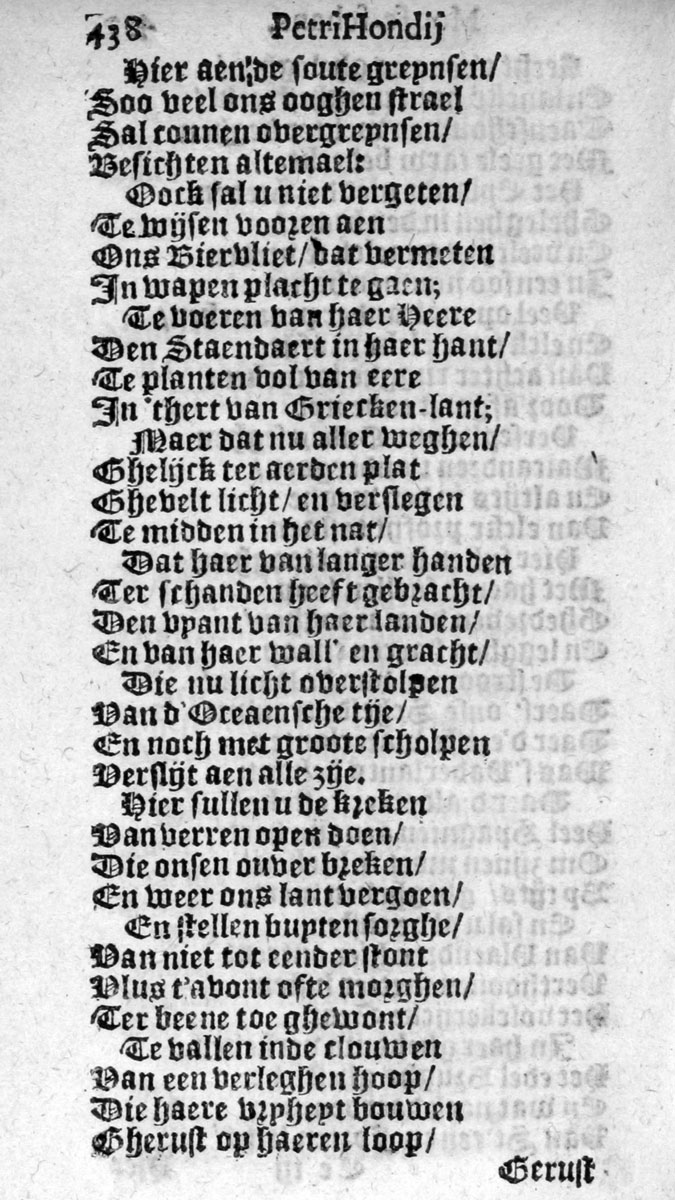 438 Petri Hondij
Hier aen de soute greynsen/
Soo veel ons ooghen strael
Sal connen overgreynsen/
Besichten altemael:
Oock sal u niet vergeten/
Te wijsen vooren aen
Ons Biervliet/ dat vermeten
In wapen placht te gaen;
Te voeren van haer Heere
Den Staendaert in haer hant/
Te planten vol van eere
In 'thert van Griecken-lant;
Maer dat nu aller weghen/
Ghelijck ter aerden plat
Ghevelt licht/ en verslegen
Te midden in het nat/
Dat haer van langer handen
Ter schanden heeft gebracht/
Den vpant van haer landen/
En van haer wall' en gracht/
Die nu licht overstolpen
Van d'Oceaensche tije/
En noch met groote scholpen
Verslijt aen alle zije.
Hier sullen u de kreken
Van verren open doen/
Die onsen ouver breken/
En weer ons lant vergoen/
En stellen buyten sorghe/
Van niet tot eender stont
Vlus t'avont ofte morghen/
Ter beene toe ghewont/
Te vallen inde clouwen
Van een verleghen hoop/
Die haere vryheyt bouwen
Gherust op haeren loop/
Gerust